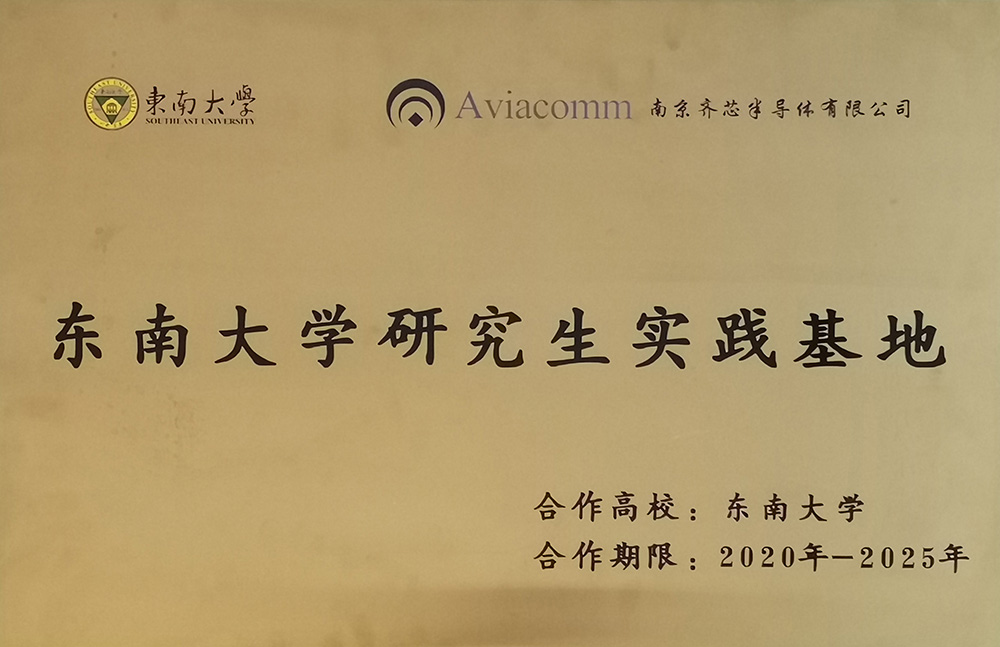 東南大學
SOUTHEAST UNIVERSITY
Aviacomm 南京齐芯半导体有限公司
东南大学研究生实践基地
合作高校：东南大学
合作期限：2020年—2025年